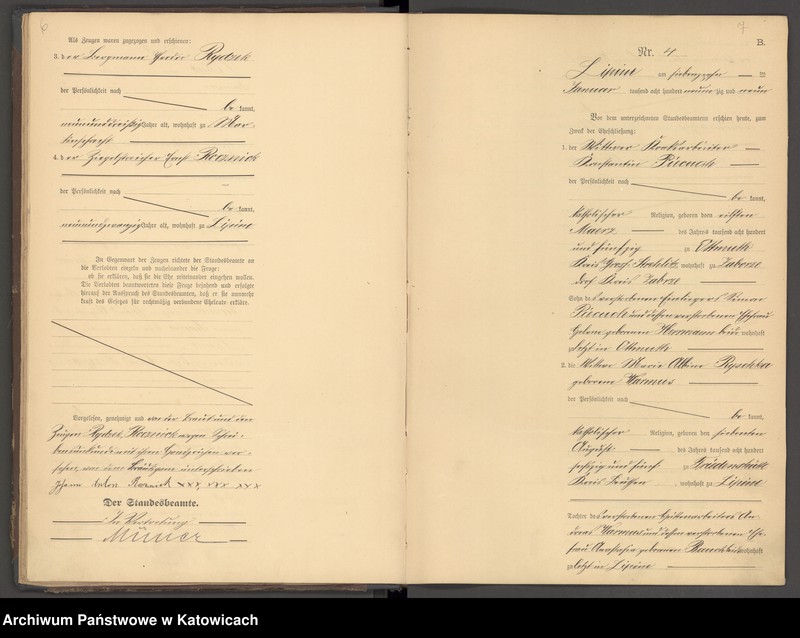 6
Als Zeugen waren zugezogen und erschienen:
3. der Bergmann Rydzek
der Persönlichkeit nach
be kannt,
neununddreißig Jahre alt, wohnhaft zu Mor-
genschaft
4. der Ziegelstreicher Roznick
der Persönlichkeit nach
be kannt,
neunundzwanzig Jahre alt, wohnhaft zu Lipine
In Gegenwart der Zeugen richtete der Standesbeamte an
die Verlobten einzeln und nacheinander die Frage:
ob sie erklären, daß sie die Ehe miteinander eingehen wollen.
Die Verlobten beantworteten diese Frage bejahend und erfolgte
hierauf der Ausspruch des Standesbeamten, daß er sie nunmehr
kraft des Gesetzes für rechtmäßig verbundene Eheleute erkläre.
Vorgelesen, genehmigt und von der Braut und den
Zeugen Rydzek, Roznick wegen Schrei-
bensunkunde mit ihren Handzeichen ver-
sehen, von dem Bräutigam unterschrieben
xxx, xxx xxx
Der Standesbeamte.
In Vertretung
7
B.
Nr. 4
Lipine am siebenzehn ten
Januar tausend acht hundert neunzig und neun
Vor dem unterzeichneten Standesbeamten erschien heute, zum
Zweck der Eheschließung:
1. der Wittwer Koaksarbeiter
Konstantin Piecuch
der Persönlichkeit nach
be kannt,
katholischer Religion, geboren den eilften
Maerz des Jahres tausend acht hundert
und fünfzig zu Ottmuth
Kreis Groß-Strehlitz, wohnhaft zu Zaborze
dorf Kreis Zabrze
Sohn des verstorbenen Einliegers Simon
Piecuch und dessen verstorbenen Ehefrau
Helene geborenen Herrmann beide wohnhaft
zuletzt in Ottmuth
2. die Wittwe Marie Albine Ryschka
geborene Warmus
der Persönlichkeit nach
be kannt,
katholischer Religion, geboren den siebenten
August des Jahres tausend acht hundert
sechszig und fünf zu Friedenshütte
Kreis Beuthen, wohnhaft zu Lipine
Tochter des verstorbenen Hüttenarbeiters An-
dreas Warmus und dessen verstorbenen Ehe-
frau Anastasia geborenen wohnhaft
zuletzt in Lipine
Archiwum Państwowe w Katowicach